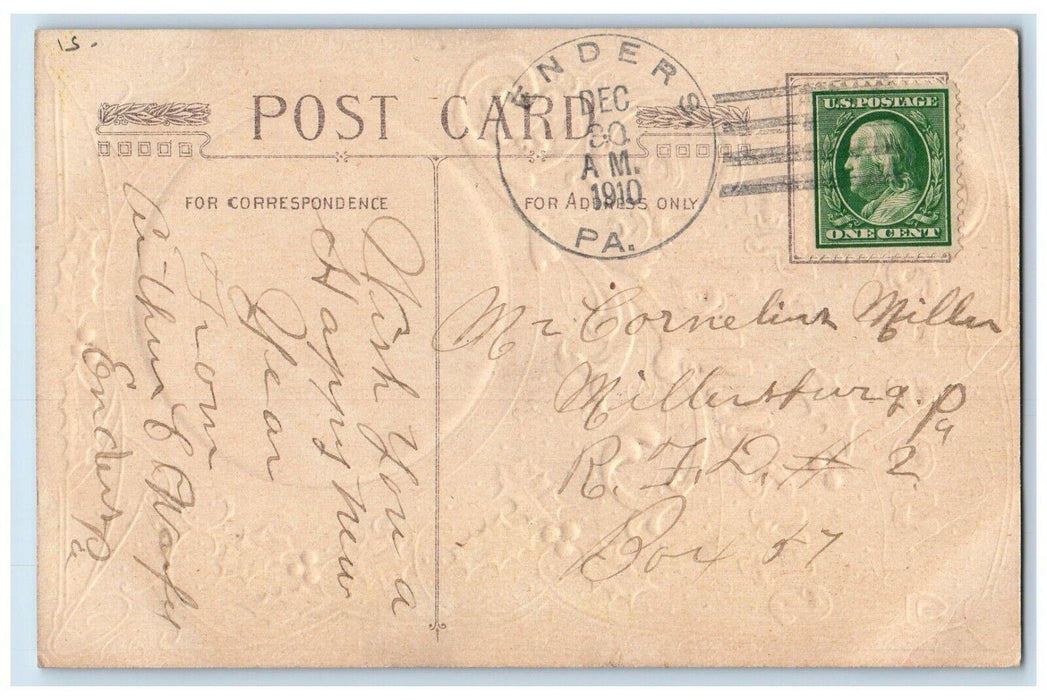 15.
POST CARD
ENDERS
DEC
30
A M.
1910
PA.
U.S. POSTAGE
ONE CENT
FOR CORRESPONDENCE
FOR ADDRESS ONLY
Wish You a
Happy New
Year
From
Arthur E
Enders Pa
Mr Cornelius Miller
Millersburg. Pa
R. F. D. # 2.
Box